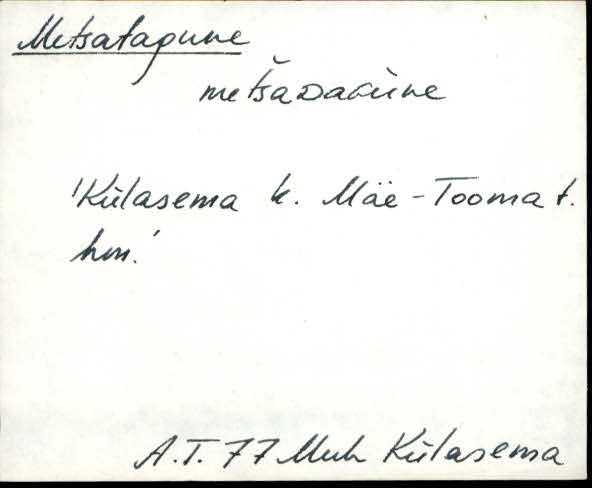 Metsatagune
metšaDaGùne
'Külasema k. Mäe-Tooma t.
hm.'
A.T. 77 Muh Külasema